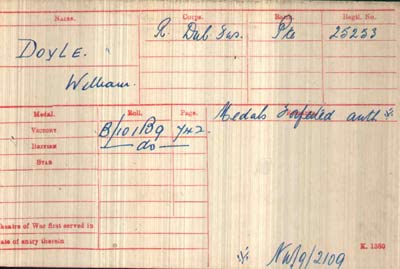 Name. Corps. Rank. Regtl. No.
DOYLE. R. Dub Fus. Pte 25253
William.
Medal. Roll. Page. Medals forfeited auth
VICTORY B/101 B9 742
BRITISH do
STAR
Theatre of War first served in
Date of entry therein K. 1380
NW/9/2109